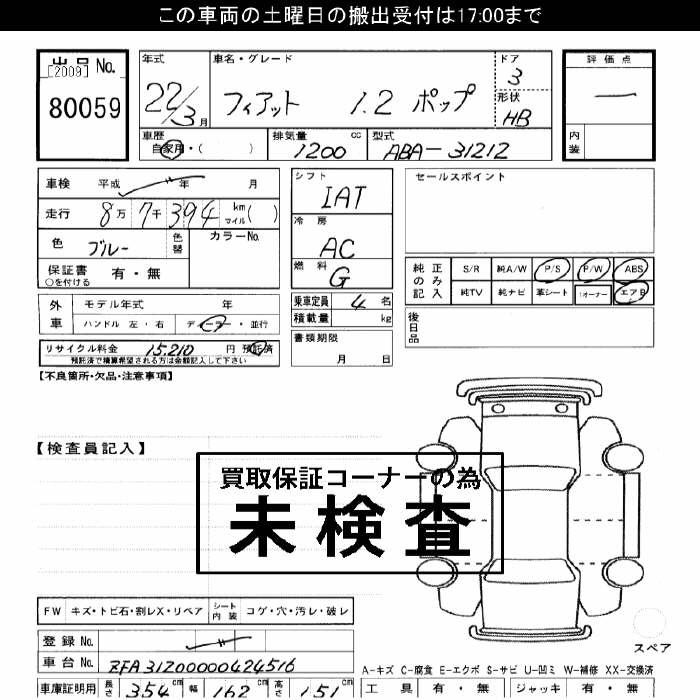 この車両の土曜日の搬出受付は17:00まで
出品 No.
[2009]
80059
年式
22/3月
車名・グレード
フィアット 1.2 ポップ
ドア
3
形状
HB
評価点
内装
車歴
自家用・( )
排気量 cc
1200
型式
ABA-31212
車検 平成 年 月
走行 8万7千394 km マイル( )
色 ブルー
色替
カラーNo.
保証書 有・無
○を付ける
シフト
IAT
冷房
AC
燃料
G
乗車定員 4 名
積載量 kg
書類期限
月 日
セールスポイント
純正のみ記入
S/R 純A/W P/S P/W ABS
純TV 純ナビ 革シート 1オーナー エアB
後日品
外車 モデル年式 年
ハンドル 左・右 ディーラー・並行
リサイクル料金 15,210 円 預託済
預託済で積算希望される方は金額記入して下さい
【不良箇所・欠品・注意事項】
【検査員記入】
買取保証コーナーの為
未検査
FW キズ・トビ石・割レX・リペア シート内装 コゲ・穴・汚レ・破レ
登録 No.
車台 No. ZFA31200000424516
車庫証明用 長さ 354 cm 幅 162 cm 高さ 151 cm
スペア
A-キズ C-腐食 E-エクボ S-サビ U-凹ミ W-補修 XX-交換済
工具 有・無 ジャッキ 有・無